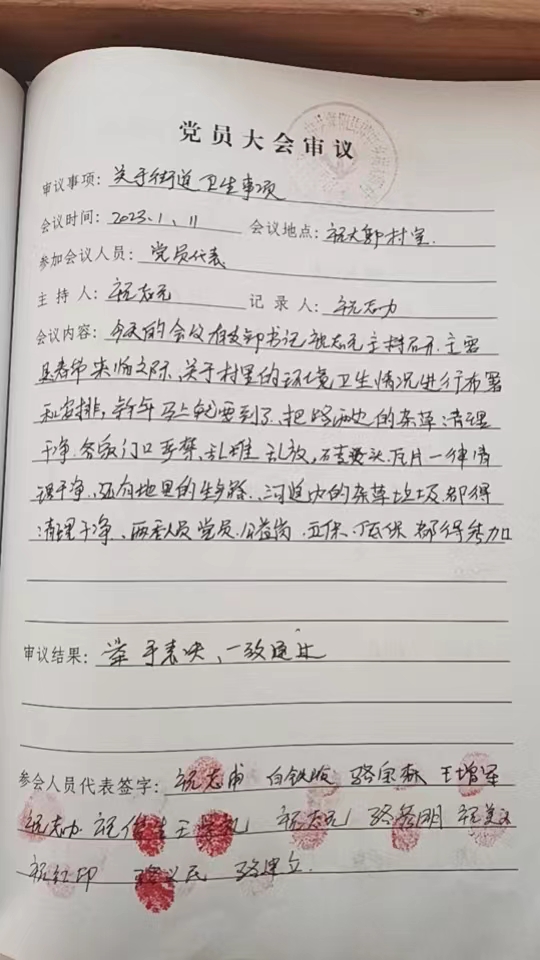 党员大会审议
审议事项：关于街道卫生事项
会议时间：2023.1.11 会议地点：祝大郭村室
参加会议人员：党员代表
主持人：祝志元 记录人：祝志力
会议内容：今天的会议有支部书记祝志元主持召开.主要
是春节来临之际、关于村里的环境卫生情况进行布署
和安排，新年马上就要到了、把路两边的杂草清理
干净.各家门口严禁、乱堆乱放，石头瓦片一律清
理干净、还有地里的生产路、河道内的杂草垃圾都得
清理干净、两委人员党员.公益岗.五保、低保都得参加
审议结果：举手表决、一致通过
参会人员代表签字：祝志甫 白铁 骆宝森 王增军
祝志力 祝 王 祝志元 骆 明 祝
祝红印 骆义民 骆建立.